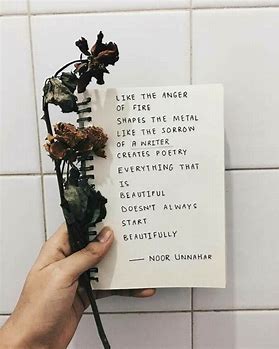 LIKE THE ANGER
OF FIRE
SHAPES THE METAL
LIKE THE SORROW
OF A WRITER
CREATES POETRY
EVERYTHING THAT
IS
BEAUTIFUL
DOESN'T ALWAYS
START
BEAUTIFULLY
— NOOR UNNAHAR